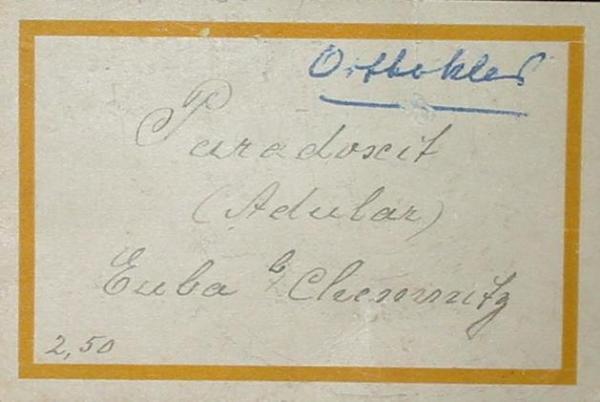 Orthoklas
Paradoxit
(Adular)
Euba b/ Chemnitz
2,50